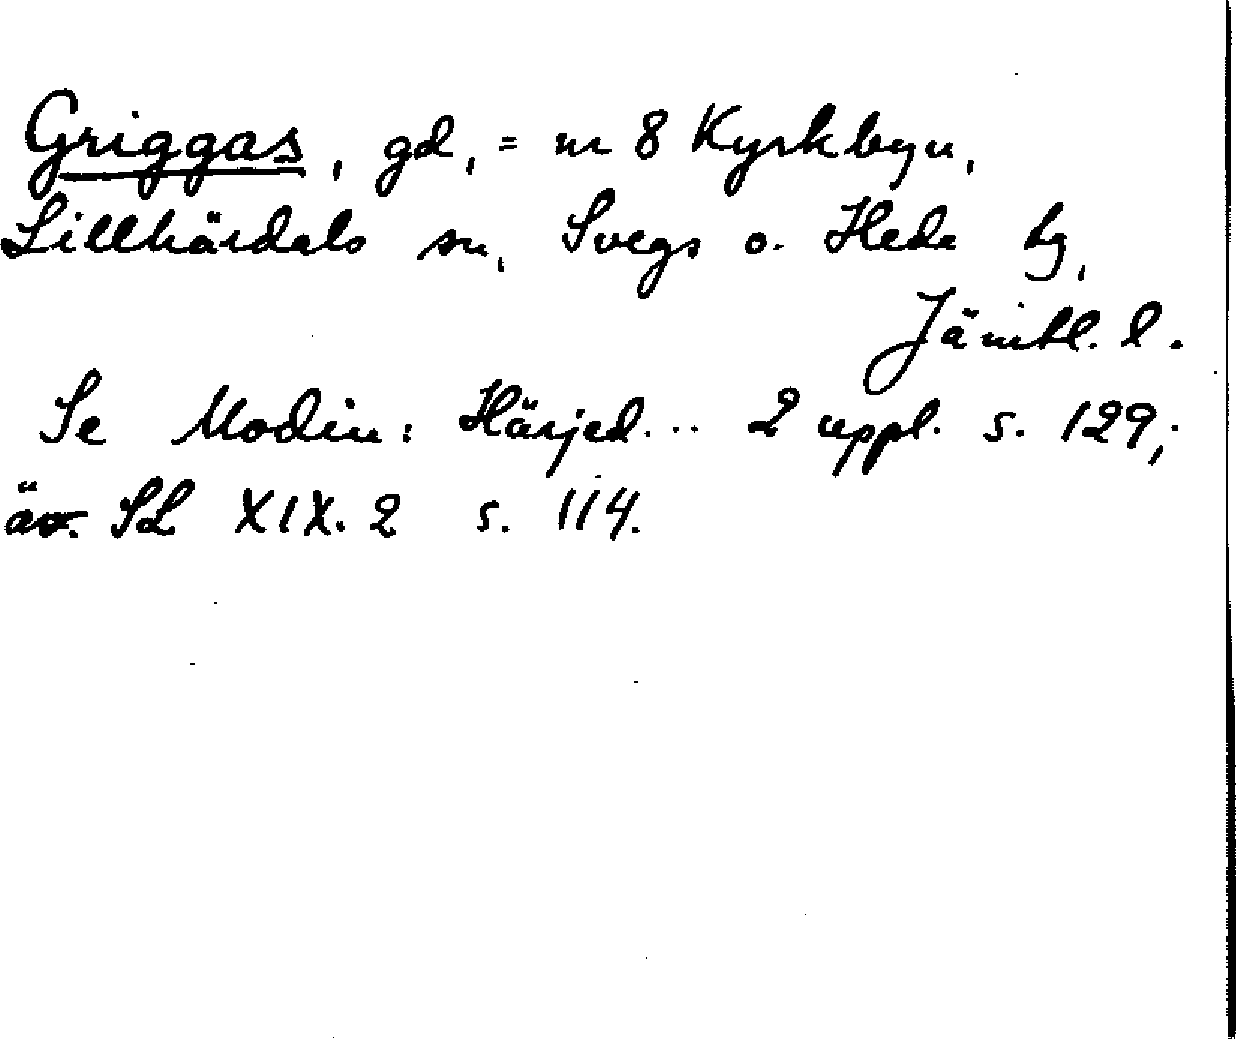 Griggas, gd, = nr 8 Kyrkbyn,
Lillhärdals sn, Svegs o. Hede tg,
Jämtl. l.
Se Modin: Härjed... 2 uppl. s. 129;
äv. SL XIX. 2 s. 114.